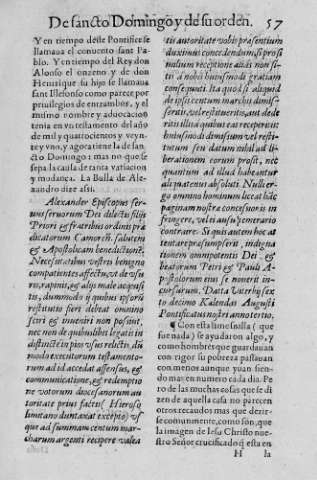 De sancto Domingo y de su orden. 57
Y en tiempo deste Pontifice se
llamaua el conuento sant Pa-
blo. Y en tiempo del Rey don
Alonso el onzeno y de don
Henrique su hijo se llamaua
sant Ilefonso como parece por
priuilegios de entrambos, y el
mismo nombre y aduocacion
tenia en vn testamento del año
de mil y quatrocientos y veyn-
te y vno, y agora tiene la de san-
cto Domingo: mas no que se
sepa la causa de tanta variacion
y mudança. La Bulla de Ale-
xandro dize assi.
Alexander Episcopus ser-
uus seruorum Dei dilectis filijs
Priori & fratribus ordinis præ
dicatorum Camoreñ. salutem
& Apostolicam benedictionē.
Necessitatibus vestris benigno
compatientes affectu, vt de vsu
ris, rapinis, & alijs male acquisi
tis, dummodo ij quibus ipsorū
restitutio fieri debeat omnino
sciri & inueniri non possint,
nec non de quibuslibet legatis in
distinctè in pios vsus relictis, dū
modo executorum testamento-
rum ad id accedat assensus, &
communicatione, & redemptio
ne votorum diocesanorum au
toritate prius factus (Hieroso
limitano duntaxat excepto) vs
que ad summam centum mar-
charum argenti recipere valea
tis autoritate vobis præsentium
duximus concedendum, si pro si
milium receptione aliàs non si-
tis à nobis huiusmodi gratiam
consequuti. Ita quod si aliquid
de ipsis centum marchis dimis-
seritis, vel restitueritis, aut dede
ritis illis à quibus eas receperitis
huiusmodi dimissum vel resti-
tutum seu datum nihil ad li-
berationem eorum prosit, nec
quantum ad illud habeantur
aliquatenus absoluti. Nulli er-
go omnino hominum liceat hāc
paginam nostræ concessionis in
fringere, vel ei ausu temerario
contraire. Si quis autem hoc at
tentare præsumpserit, indigna
tionem omnipotentis Dei &
beatorum Petri & Pauli A-
postolorum eius se nouerit in-
cursurum. Datta Viterbij sex
to decimo Kalendas Augusti
Pontificatus nostri anno tertio.
¶ Con esta limosnilla (que
fue nada) se ayudaron algo, y
como hombres que guardauan
con rigor su pobreza passauan
con menos aunque yuan sien-
do mas en numero cada dia. Pe
ro de las muchas cosas que se di
zen de aquella casa no parecen
otros recaudos mas que dezir-
se comunmente, como son, que
la imagen de Iesu Christo nue-
stro Señor crucificado q̄ esta en
H la